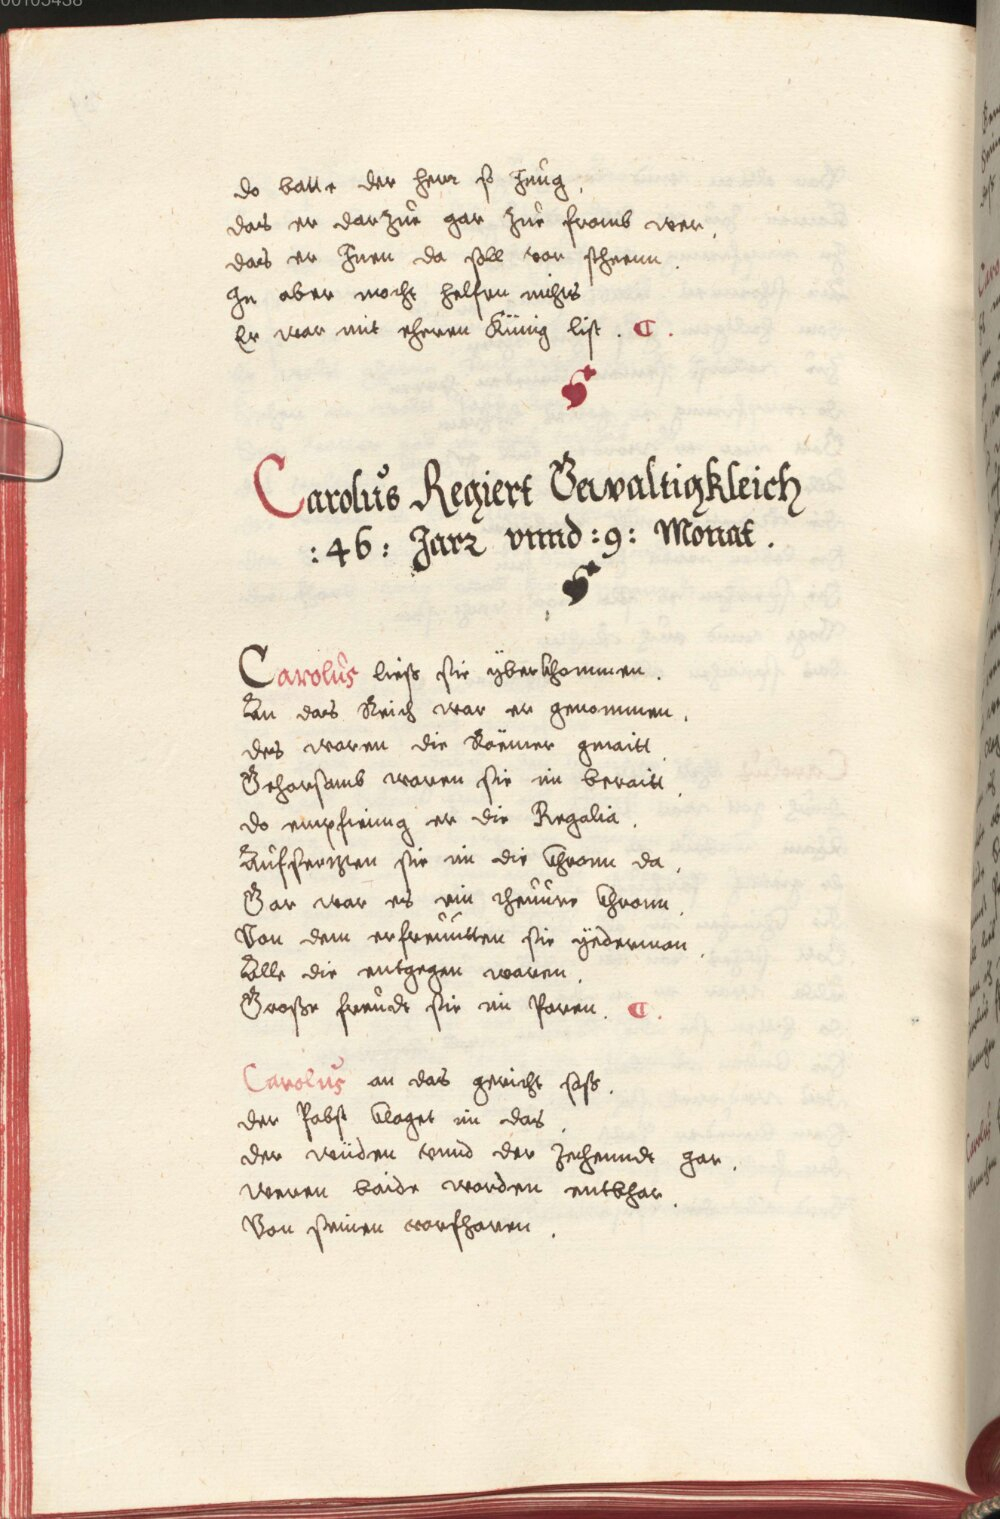 do batt e der herr so Jnng,
das er darzue gar zue fromb wer,
das er Jnen da soll vor scheenn.
Jn aber mocht helfen nichts
Er war mit eheren Künig list. C.
Carolus Regiert Gewaltigkleich
:46: Jarz vnnd :9: Monat.
Carolus liess sie überkhommen.
An das Reich war er genommen.
des waren die Roemer gmaitt
Gehorsamb waren sie im beraitt.
do empfienng er die Regalia.
Aufsertzten sie im die Chronn da.
Gar war es ein theuure Chronn.
Von dem erfreuutten sie yederman.
Alle die entgegen waren.
Grosse freudt sie im Paren. C.
Carolus an das gericht sass.
der Pabst klaget im das,
der wüden vnnd der zehenndt gar.
weren baide worden entbhar.
Von seinen vorfharen.